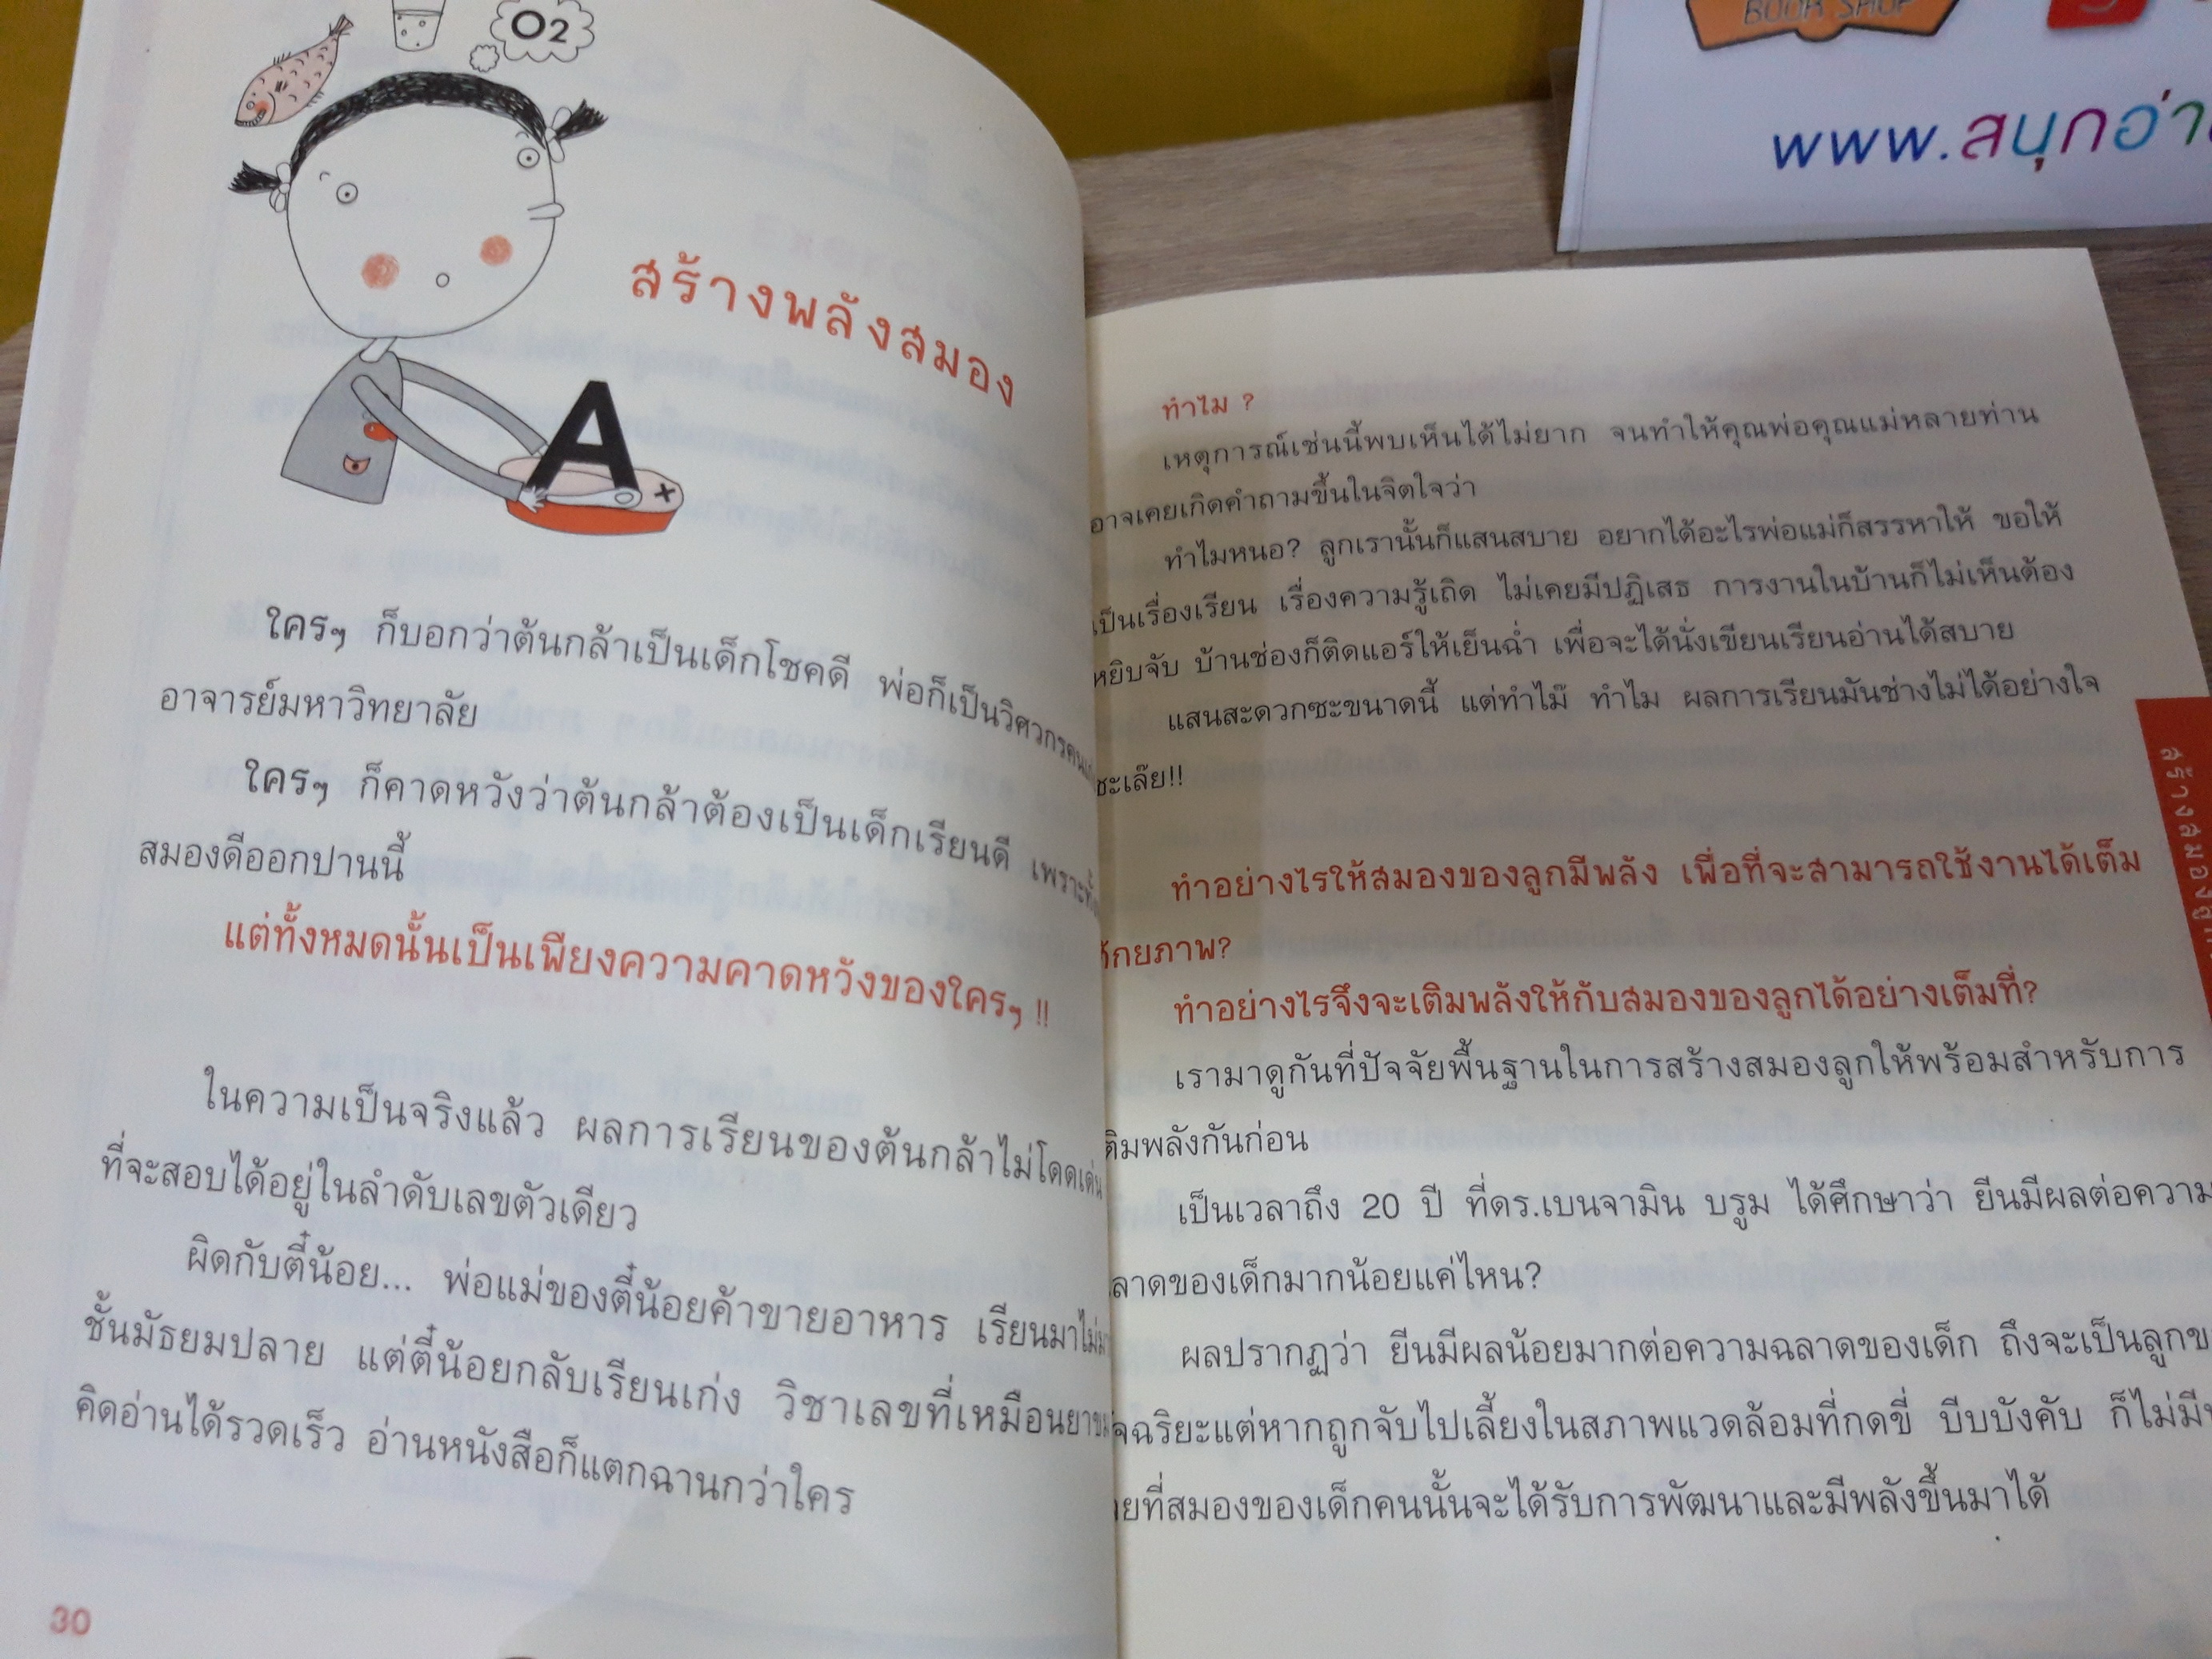 O2
สร้างพลังสมอง
A
ใครๆ ก็บอกว่าต้นกล้าเป็นเด็กโชคดี พ่อก็เป็นวิศวกรคน
อาจารย์มหาวิทยาลัย
ใครๆ ก็คาดหวังว่าต้นกล้าต้องเป็นเด็กเรียนดี เพราะ
สมองดีออกปานนี้
แต่ทั้งหมดนั้นเป็นเพียงความคาดหวังของใครๆ !!
ในความเป็นจริงแล้ว ผลการเรียนของต้นกล้าไม่โดดเด่น
ที่จะสอบได้อยู่ในลำดับเลขตัวเดียว
ผิดกับตี๋น้อย... พ่อแม่ของตี๋น้อยค้าขายอาหาร เรียนมาไม่
ชั้นมัธยมปลาย แต่ตี๋น้อยกลับเรียนเก่ง วิชาเลขที่เหมือนยา
คิดอ่านได้รวดเร็ว อ่านหนังสือก็แตกฉานกว่าใคร
30
BOOK SHOP
www.สนุกอ่า
ทำไม ?
เหตุการณ์เช่นนี้พบเห็นได้ไม่ยาก จนทำให้คุณพ่อคุณแม่หลายท่าน
อาจเคยเกิดคำถามขึ้นในจิตใจว่า
ทำไมหนอ? ลูกเรานั้นก็แสนสบาย อยากได้อะไรพ่อแม่ก็สรรหาให้ ขอให้
เป็นเรื่องเรียน เรื่องความรู้เถิด ไม่เคยมีปฏิเสธ การงานในบ้านก็ไม่เห็นต้อง
หยิบจับ บ้านช่องก็ติดแอร์ให้เย็นฉ่ำ เพื่อจะได้นั่งเขียนเรียนอ่านได้สบาย
แสนสะดวกซะขนาดนี้ แต่ทำไม๊ ทำไม ผลการเรียนมันช่างไม่ได้อย่างใจ
ซะเล้ย!!
ทำอย่างไรให้สมองของลูกมีพลัง เพื่อที่จะสามารถใช้งานได้เต็ม
ศักยภาพ?
ทำอย่างไรจึงจะเติมพลังให้กับสมองของลูกได้อย่างเต็มที่?
เรามาดูกันที่ปัจจัยพื้นฐานในการสร้างสมองลูกให้พร้อมสำหรับการ
เติมพลังกันก่อน
เป็นเวลาถึง 20 ปี ที่ดร.เบนจามิน บรูม ได้ศึกษาว่า ยีนมีผลต่อความ
ลาดของเด็กมากน้อยแค่ไหน?
ผลปรากฏว่า ยีนมีผลน้อยมากต่อความฉลาดของเด็ก ถึงจะเป็นลูกข
จฉริยะแต่หากถูกจับไปเลี้ยงในสภาพแวดล้อมที่กดขี่ บีบบังคับ ก็ไม่มี
ยที่สมองของเด็กคนนั้นจะได้รับการพัฒนาและมีพลังขึ้นมาได้
สร้างสมอง